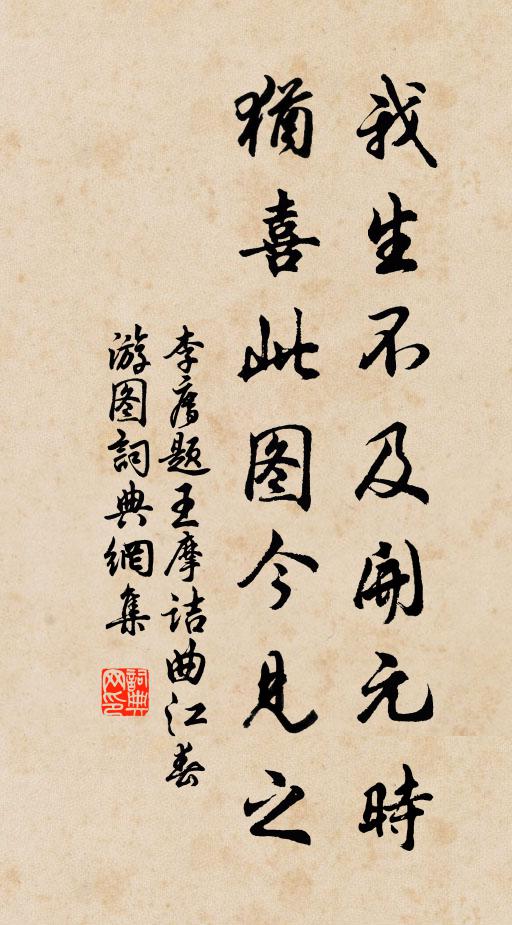 我生不及開元時
猶喜此图今見之
李廌題王摩詰曲江春
游图詞典網集
詞典
网印